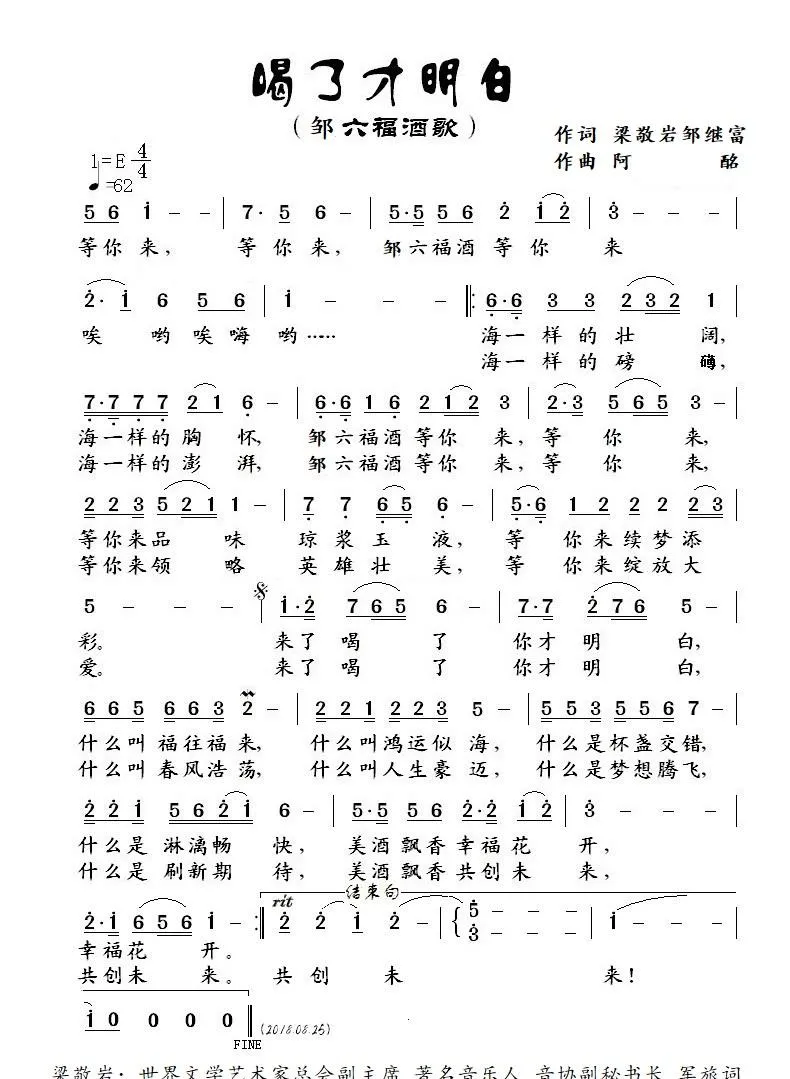 喝了才明白
（邹六福酒歌）
作词 梁敬岩邹继富
作曲 阿 酩
1=E 4/4
♩=62
5 6 i - - | 7· 5 6 - | 5·5 5 6 2 i 2 | 3 - - |
等你 来， 等 你 来， 邹六福酒 等 你 来
2·i 6 5 6 | i - - - ‖: 6·6 3 3 2 3 2 1 |
唉 哟 唉 嗨 哟…… 海一 样 的 壮 阔，
海一 样 的 磅 礴，
7·7 7 7 2 1 6 - | 6·6 1 6 2 1 2 3 | 2·3 5 6 5 3 - |
海一样的 胸 怀， 邹六福酒 等你 来，等 你 来，
海一样的 澎 湃， 邹六福酒 等你 来，等 你 来，
2 2 3 5 2 1 1 - | 7 7 6 5 | 5·6 1 2 2 2 |
等你来品 味 琼 浆 玉 液， 等 你 来续梦添
等你来领 略 英 雄 壮 美， 等 你 来绽放大
5 - - - | i·2 7 6 5 6 - | 7·7 2 7 6 5 - |
彩。 来了 喝 了 你才 明 白，
爱。 来了 喝 了 你才 明 白，
6 6 5 6 6 3 2 - | 2 2 1 2 2 3 5 - | 5 5 3 5 5 6 7 - |
什么叫 福往福 来， 什么叫鸿运似 海， 什么是杯盏交错，
什么叫 春风浩 荡， 什么叫人生豪 迈， 什么是梦想腾飞，
2 2 i 5 6 2 i 6 - | 5·5 5 6 2·2 i 2 | 3 - - |
什么是 淋漓畅 快， 美酒飘香幸福花 开，
什么是 刷新期 待， 美酒飘香共创未 来，
结束句
rit
2·i 6 5 6 i - :‖ 2 2 i 2 - | 5 - - - | i - - - |
3 - - -
幸福花 开。
共创未 来。 共 创 未 来！
i 0 0 0 0 ‖ (2018.08.25)
FINE
梁敬岩：世界文学艺术家总会副主席，著名音乐人，音协副秘书长，军旅词